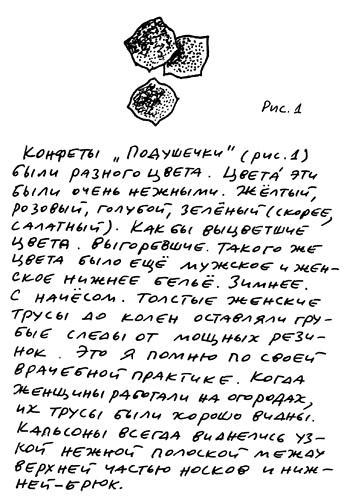 Рис. 1
Конфеты „Подушечки" (рис. 1)
были разного цвета. Цвета́ эти
были очень нежными. Жёлтый,
розовый, голубой, зелёный (скорее,
салатный). Как бы выцветшие
цвета. Выгоревшие. Такого же
цвета было ещё мужское и жен-
ское нижнее бельё. Зимнее.
С начёсом. Толстые женские
трусы до колен оставляли гру-
бые следы от мощных рези-
нок. Это я помню по своей
врачебной практике. Когда
женщины работали на огородах,
их трусы были хорошо видны.
Кальсоны всегда виднелись уз-
кой нежной полоской между
верхней частью носков и ниж-
ней-брюк.